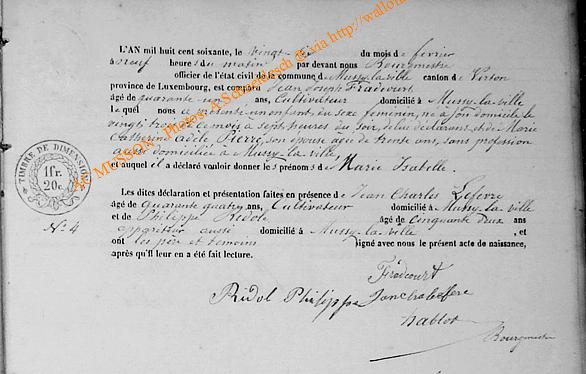 L'AN mil huit cent soixante, le vingt six du mois de février
à neuf heures du matin par devant nous Bourgmestre
officier de l'état civil de la commune de Mussy-la-ville canton de Virton
province de Luxembourg, est comparu Jean Joseph Fradcourt
âgé de quarante un ans, Cultivateur domicilié à Mussy-la-ville
lequel nous a présenté un enfant, du sexe féminin, né à son domicile le
vingt trois de ce mois à sept heures du soir, de lui déclarant, et de Marie
Catherine Adèle Pierre, son épouse âgée de trente ans, sans profession
aussi domiciliée à Mussy-la-ville,
et auquel il a déclaré vouloir donner les prénoms de Marie Isabelle.
Les dites déclaration et présentation faites en présence de Jean Charles Lefevre
âgé de Quarante quatre ans, Cultivateur domicilié à Mussy-la-ville
et de Philippe Ridole âgé de Cinquante deux ans
appariteur aussi domicilié à Mussy-la-ville, et
ont les père et témoins signé avec nous le présent acte de naissance,
après qu'il leur en a été fait lecture.
TIMBRE DE DIMENSION
1fr.
20c.
N° 4
Fradcourt
Ridol Philippe
Bourgmestre
MUSSON - Photos: A.Schaetgesch @ via http://wallo